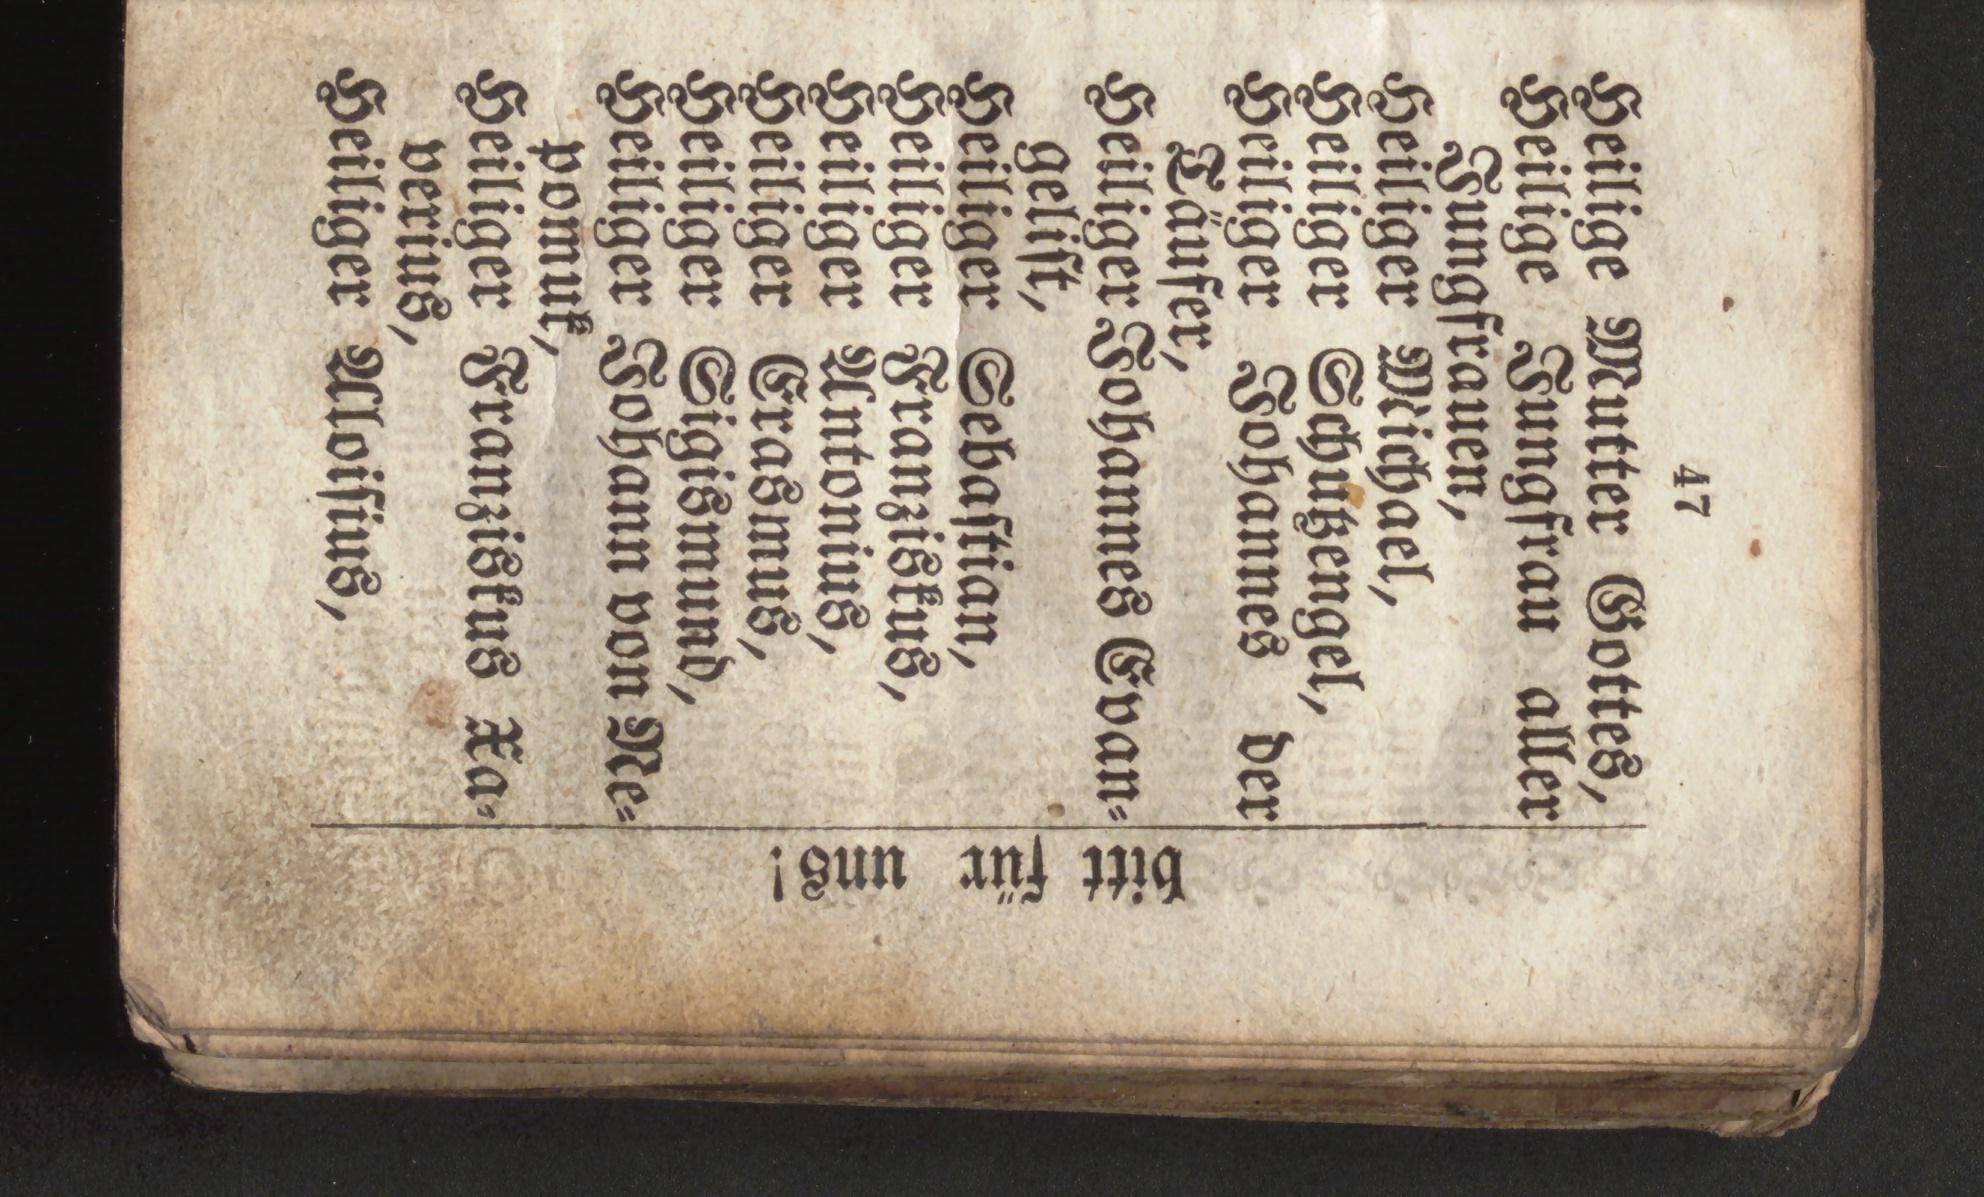 47
Heilige Mutter Gottes,
Heilige Jungfrau aller
Jungfrauen,
Heiliger Michael,
Heiliger Schutzengel,
Heiliger Johannes der
Täufer,
Heiliger Johannes Evan-
gelist,
Heiliger Sebastian,
Heiliger Franziskus,
Heiliger Antonius,
Heiliger Erasmus,
Heiliger Sigismund,
Heiliger Johann von Ne-
pomuk,
Heiliger Franziskus Xa-
verius,
Heiliger Aloisius,
bitt für uns!